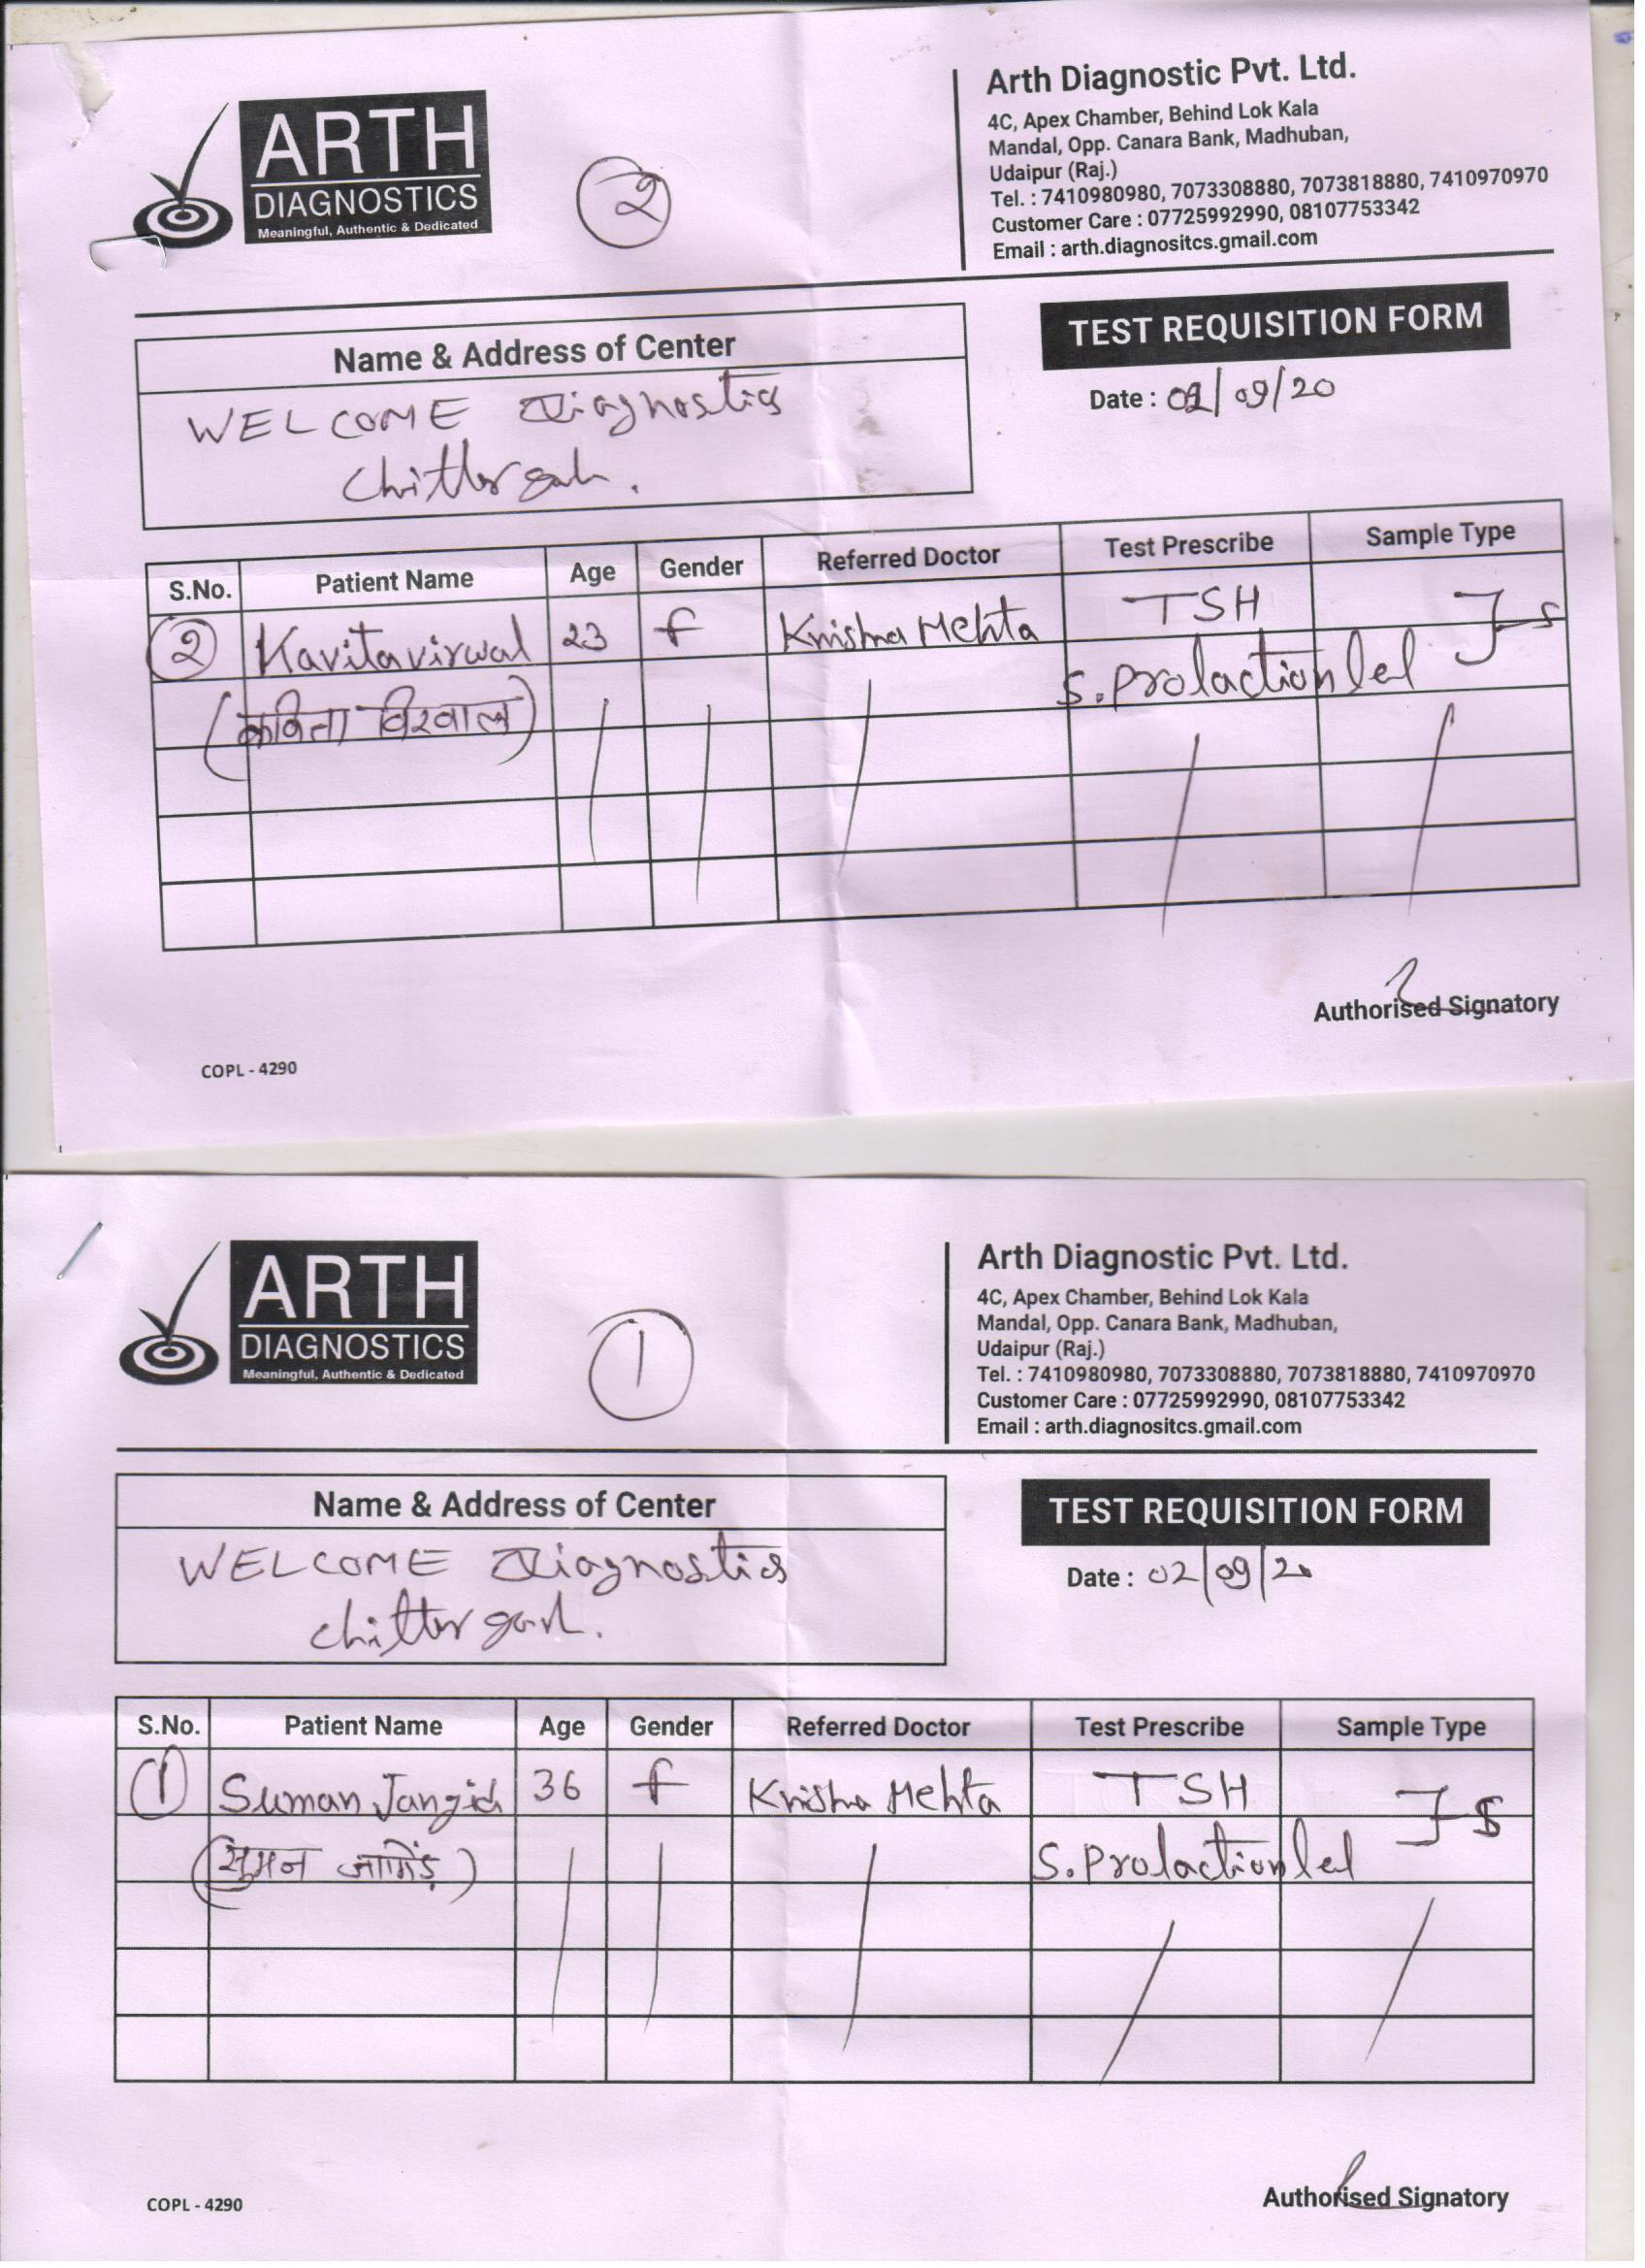 ARTH
DIAGNOSTICS
Meaningful, Authentic & Dedicated
2
Arth Diagnostic Pvt. Ltd.
4C, Apex Chamber, Behind Lok Kala
Mandal, Opp. Canara Bank, Madhuban,
Udaipur (Raj.)
Tel. : 7410980980, 7073308880, 7073818880, 7410970970
Customer Care : 07725992990, 08107753342
Email : arth.diagnositcs.gmail.com
Name & Address of Center
WELCOME Diagnostics
Chittorgarh.
TEST REQUISITION FORM
Date : 02/09/20
S.No. Patient Name Age Gender Referred Doctor Test Prescribe Sample Type
2 Kavita virwal 23 f Krishna Mehta TSH S
(कविता विरवाल) S. Prolaction lel
Authorised Signatory
COPL - 4290
ARTH
DIAGNOSTICS
Meaningful, Authentic & Dedicated
1
Arth Diagnostic Pvt. Ltd.
4C, Apex Chamber, Behind Lok Kala
Mandal, Opp. Canara Bank, Madhuban,
Udaipur (Raj.)
Tel. : 7410980980, 7073308880, 7073818880, 7410970970
Customer Care : 07725992990, 08107753342
Email : arth.diagnositcs.gmail.com
Name & Address of Center
WELCOME Diagnostics
chittorgarh.
TEST REQUISITION FORM
Date : 02/09/20
S.No. Patient Name Age Gender Referred Doctor Test Prescribe Sample Type
1 Suman Jangid 36 f Krishna Mehta TSH S
(सुमन जांगिड़) S. Prolaction lel
Authorised Signatory
COPL - 4290